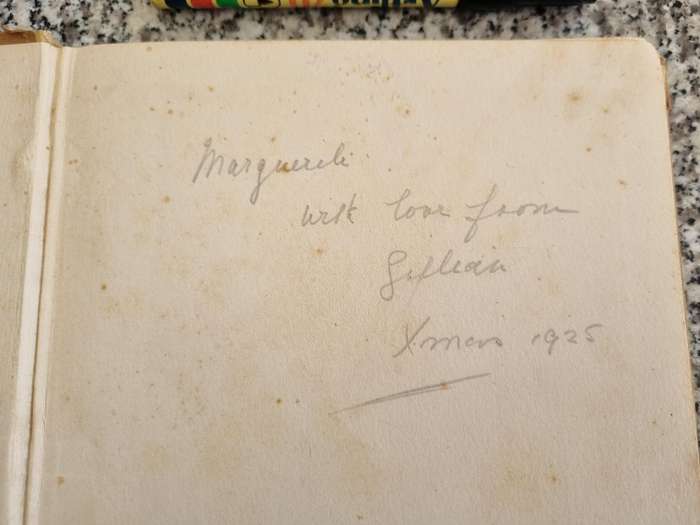 Marguerite
with love from
Gillean
Xmas 1925